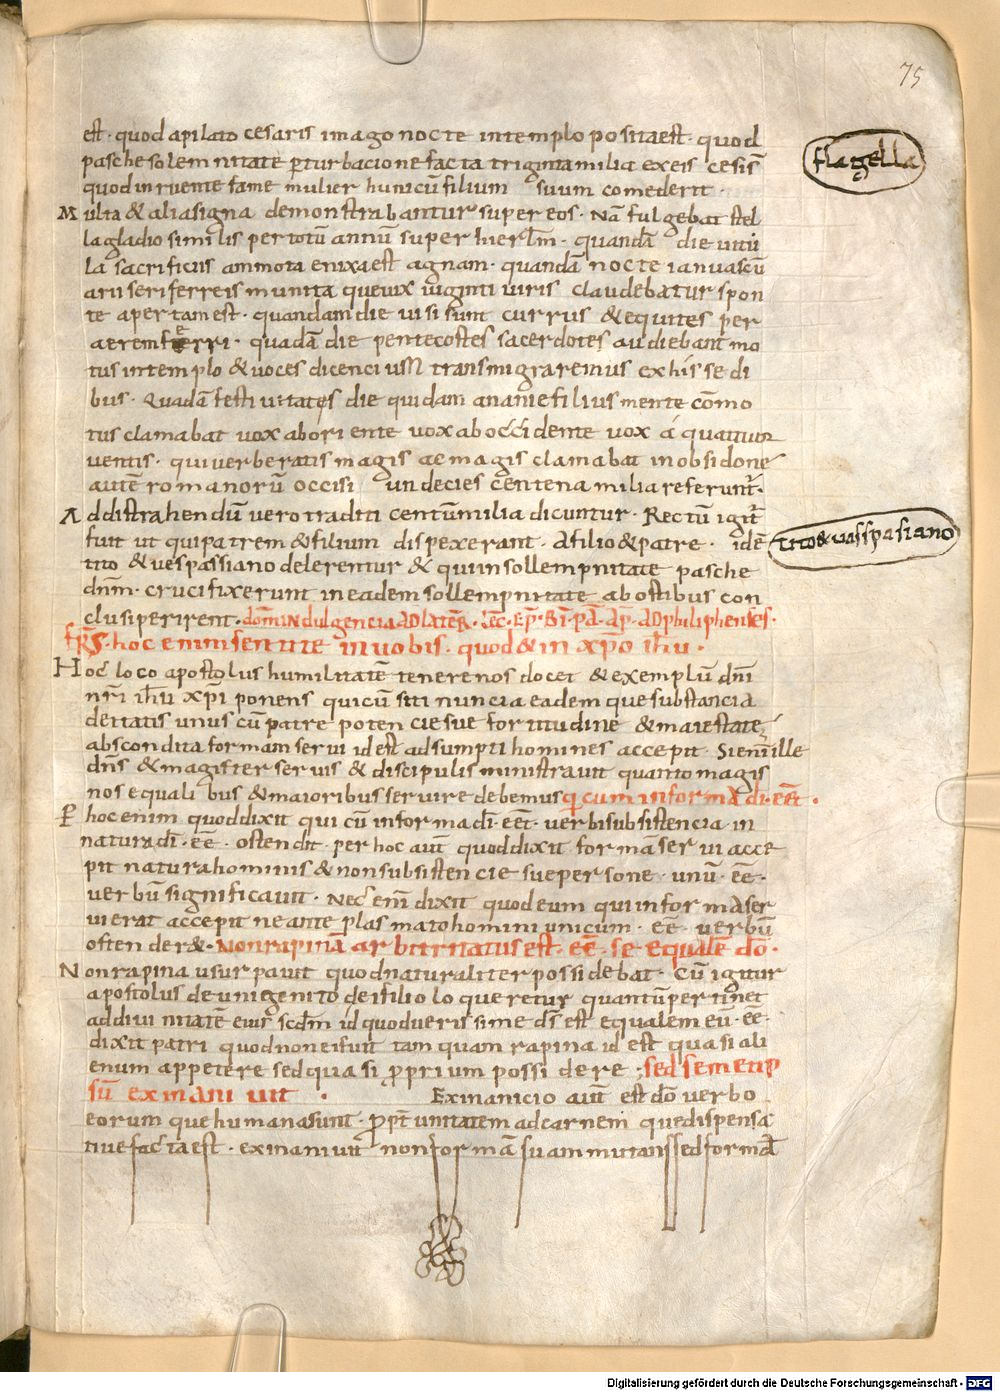 75
est · quod apilato cesaris imago nocte intemplo positaest · quod
flagella
pasche solemnitate perturbacione facta triginta milia exeis cesis̄
quod inruente fame mulier hunicū filium suum comederit ·
Multa & alia signa demonstrabantur super eos · Nā fulgebat stel
la gladio similis per totū annū super hierl̄m · quandā die uitu
la sacrificiis ammota enixaest agnam · quandā nocte ianua scū
arii seri ferreis munita que uix uiginti uiris claudebatur spon
te apertam est · quandam die uisi sunt currus & equites per
aerem ferri · quadā die pentecostes sacerdotes audiebant mo
tus intemplo & uoces dicencium transmigraremus exhis sedi
bus · Quadā festiuitates die quidam ananie filius mente cōmo
tus clamabat uox abori ente uox aboccidente uox a quattuor
uentis · qui uerberatis magis ac magis clamabat in obsidone
autē romanorū occisi undecies centena milia referunt̄ ·
Addistrahendū uero traditi centū milia dicuntur · Rectū igit̄
fuit ut qui patrem & filium dispexerant · Afilio & patre · idē
tito & uasspasiano
tito & uespassiano delerentur & qui insollempnitate pasche
dn̄m · crucifixerunt ineadem sollempnitate abostibus con
clusi perirent · dom̄ indulgencia ad lateR̄ · Lec̄ · Ep̄ · Bi · pā · Ap̄ · AD philiphenses ·
fr̄s · hoc enim sentite in uobis · quod & in xp̄o ih̄u ·
Hoc loco apostolus humilitatē tenere nos docet & exemplū dn̄i
nr̄i ih̄u xp̄i ponens qui cū siti nuncia eadem que substancia
deitatis unus cū patre potencie sue fortitudine & maiestate
abscondita formam serui id est adsumpti homines accepit · Si enī ille
dn̄s & magister seruis & discipulis ministrauit quanto magis
nos equalibus & maioribus seruire debemus qi cum in formA di · eēt ·
Per hoc enim quod dixit qui cū in forma di · eēt · uerbi subsistencia in
natura di · eē · ostendit · per hoc aut̄ quod dixit formā serui acce
pit natura hominis & non subsistencie sue persone · unū · eē ·
uerbū significauit · Nec enī dixit quod eum qui in formA ser
ui erat accepit ne ante plasmato homini unicum · eē · uerbū
ostender& · Non rapina arbitratus est · eē · se equalē dō ·
Non rapina usurpauit quod naturaliter possidebat · Cū igitur
apostolus de unigenito dei filio loqueretur quantū pertinet
ad diuinitatē eius scdm̄ id quod uerissime ds̄ est equalem eū · eē ·
dixit patri quod nonei fuit tam quam rapina id est quasi ali
enum appetere sed quasi proprium possidere · sed semetip
sū exinaniuit · Exinanicio aut̄ est dō uerbo
eorum que humana sunt · ꝓpt̄ unitatem ad carnem que dispensa
tiue facta est · exinaniuit non formā suam mutans sed formā